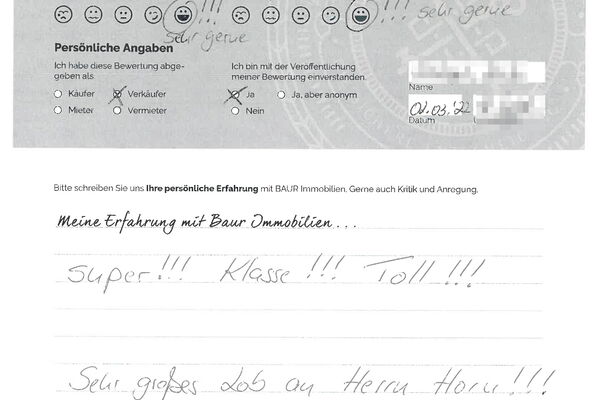 !!! !!! sehr gerne
sehr gerne
Persönliche Angaben
Ich habe diese Bewertung abge- Ich bin mit der Veröffentlichung
geben als meiner Bewertung einverstanden.
Käufer Verkäufer Ja Ja, aber anonym
Name
Mieter Vermieter Nein
02.03.'22
Datum
Bitte schreiben Sie uns Ihre persönliche Erfahrung mit BAUR Immobilien. Gerne auch Kritik und Anregung.
Meine Erfahrung mit Baur Immobilien . . .
super!!! Klasse!!! Toll!!!
Sehr großes Lob an Herrn Horn!!!